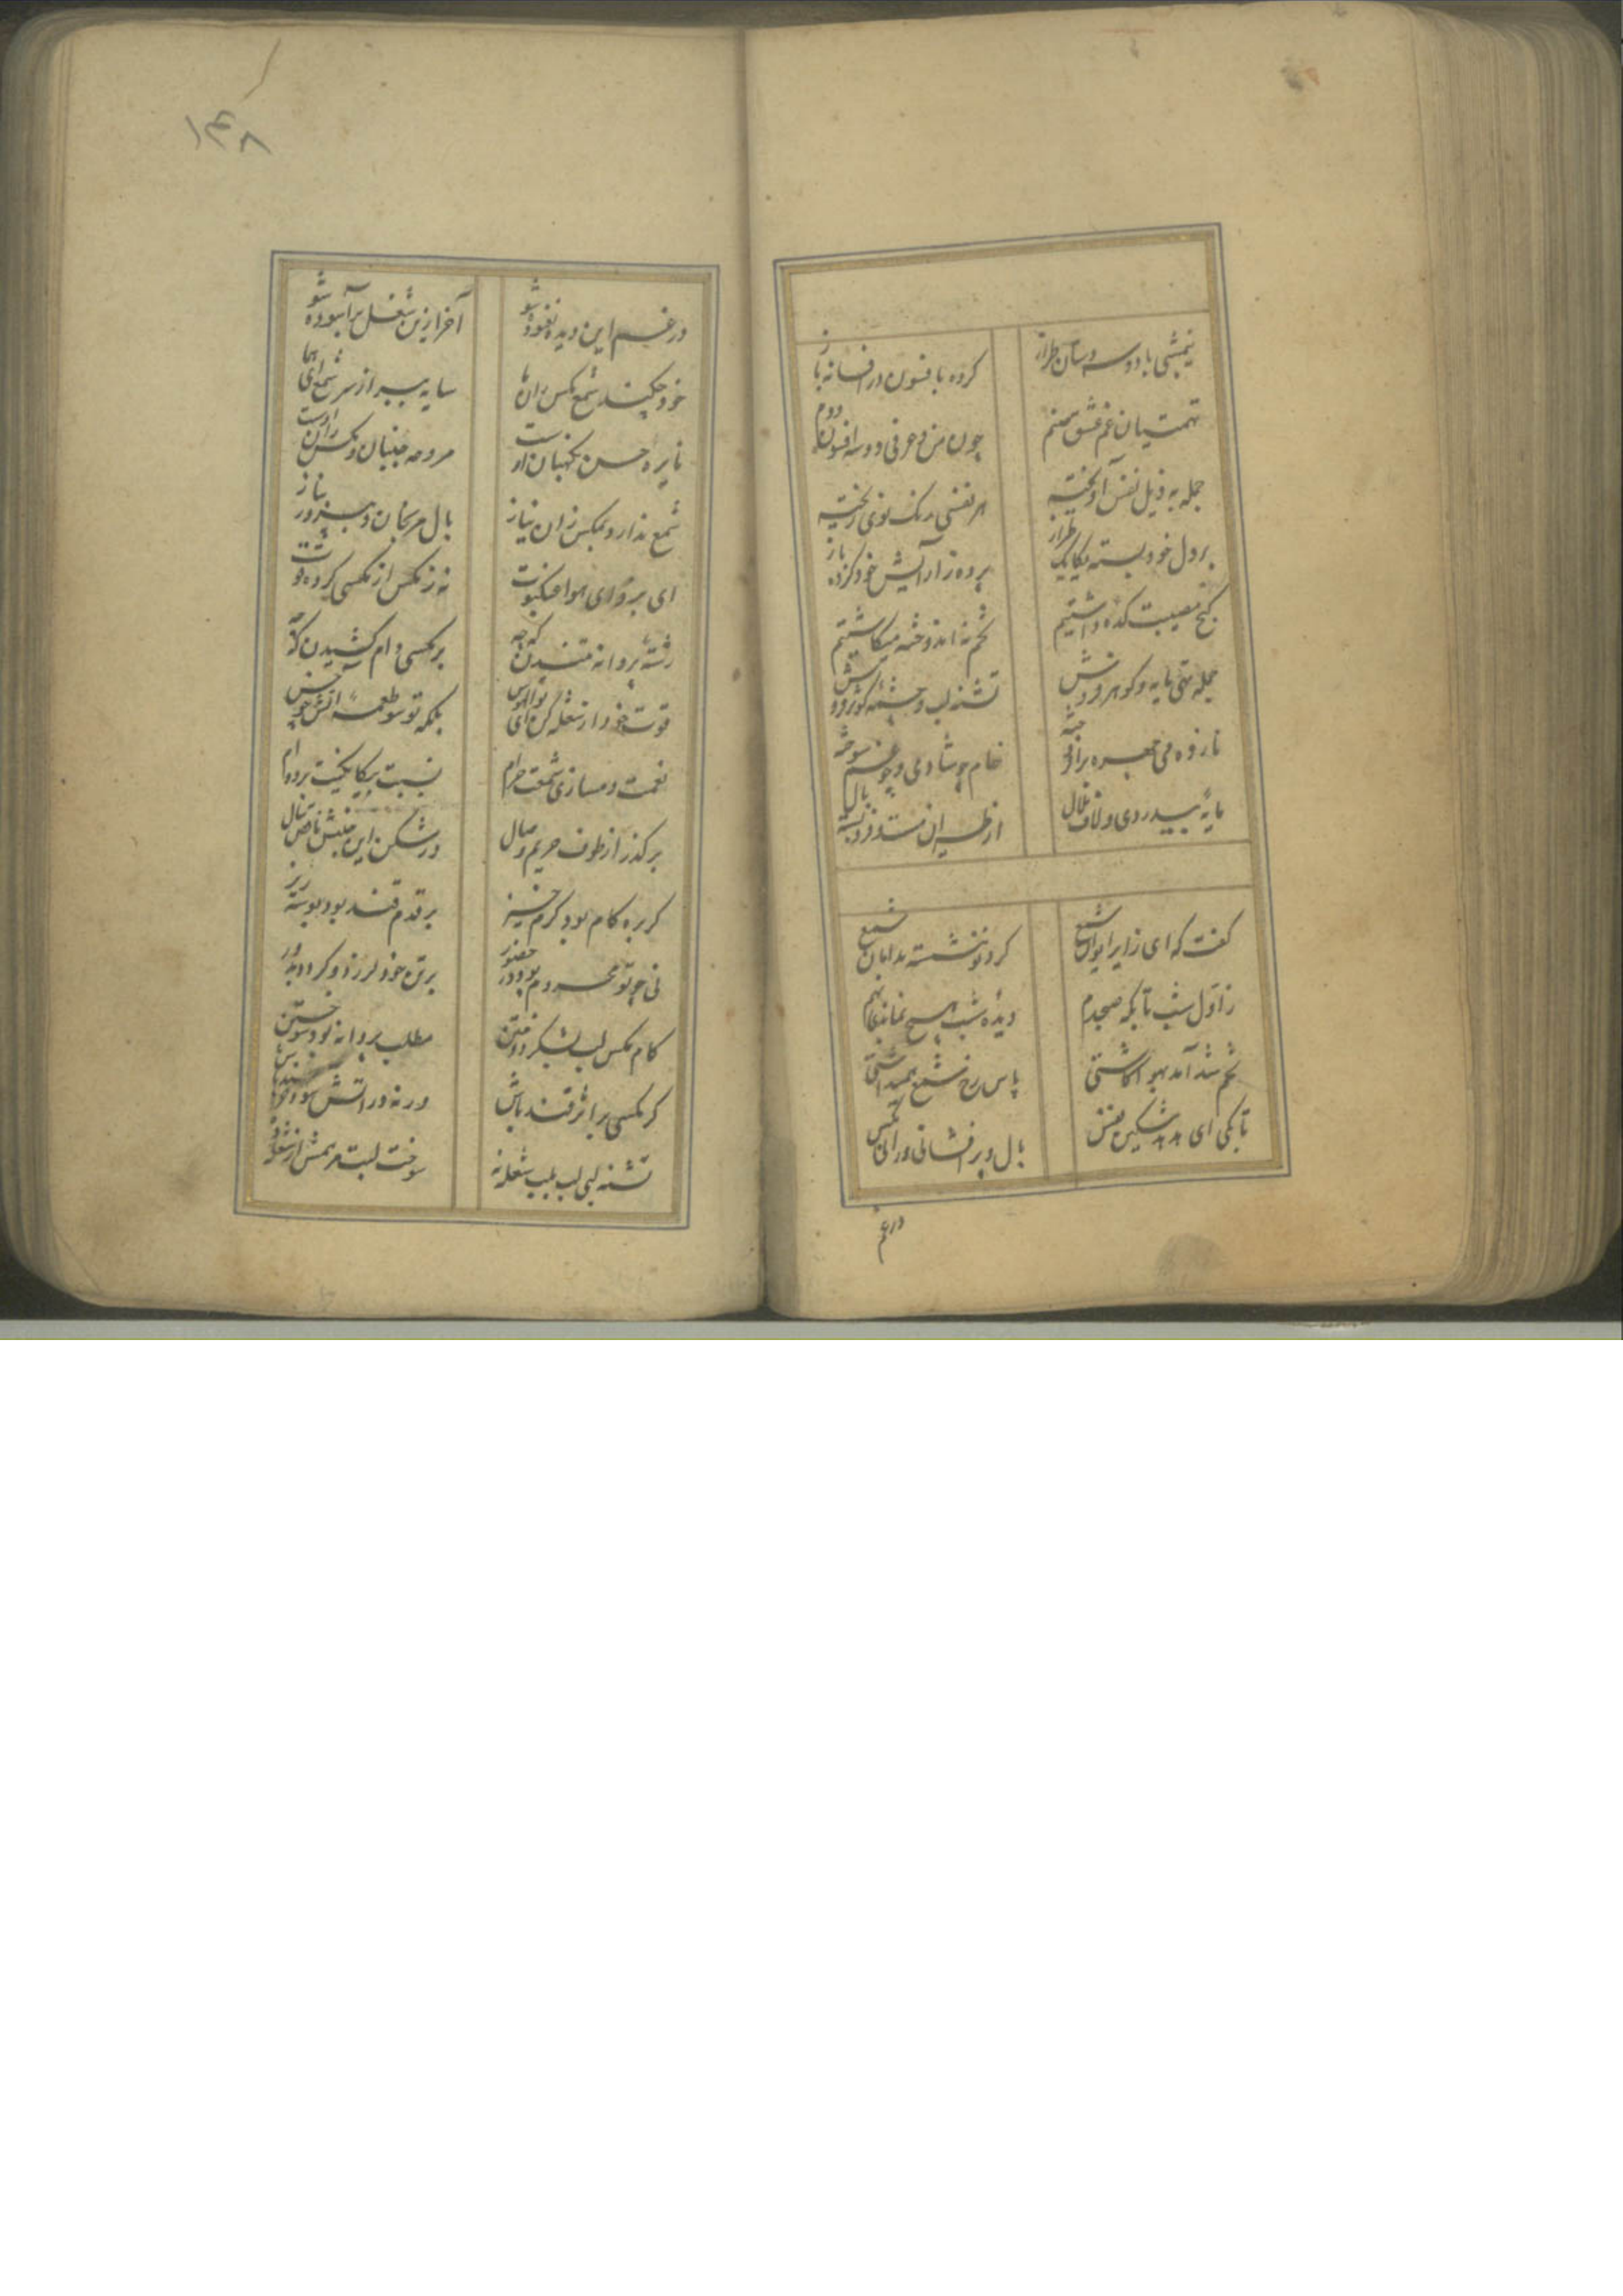 نیمشبی با دو سه دستان طراز
کرده بافسون در افسانه باز
تهمتیان غم عشق صنم
چون من و عرفی دو سه افسون دوم
جمله به ذیل نفس آویخته
هر نفسی رنک نوی ریخته
بر دل خود بسته یکایک طراز
پرده ز آرایش خود کرده باز
کنج مصیبت کده داشتیم
تخم نه اندوخته میکاشتیم
جمله تهی مایه و کوهر فروش
تشنه لب و چشمه کوثر بدوش
خام چو شادی و چو غم سوخته
مایه بیدردی و لاف
کفت که ای زایر ایوان شمع
کرد تو ننشسته بدامان شمع
ز اول شب تا بکه صبحدم
دیده شب هیچ
تخم شد آمد بهوا کاشتی
پاس رخ شمع همیداشتی
تا بکی ای هدهد شکین نفس
بال و پر افشانی و رانی مکس
در غم
۱۴۸
در غم این دیده نغنوده شو
آخر ازین شغل برآسوده شو
خود چکند شمع مکس ران ها
سایه ببر از سر شمع ای هما
نایره حسن نکهبان اوست
مروحه جنبان و مکس ران اوست
شمع ندارد بمکس ران نیاز
بال مرنجان و بپرور بناز
ای بر و ای هوا عنکبوت
نه ز مکس از مکسی کرده قوت
رشته پروانه تنیدن که چه
بر مکسی دام کشیدن که چه
قوت خود از شعله کن ای بوالهوس
بلکه تو شو طعمه آتش چو خس
نعمت دمسازی شمعت حرام
نسبت بیکانکیت برده ام
برکذر از طوف حریم وصال
در شکن این جنبش ناقص مثال
کر بره کام بود کرم خیز
بر قدم قند بود بوسه ریز
نی چو تو محروم بود در حضور
برق خود لرزد و کردد بدور
کام مکس لب بشکر دوختن
مطلب پروانه بود سوختن
کر مکسی بر اثر قند باش
ورنه در آتش شو و خرسند باش
تشنه لبی لب بلب شعله نه
سوخت لبت مرهمش از شعله نه